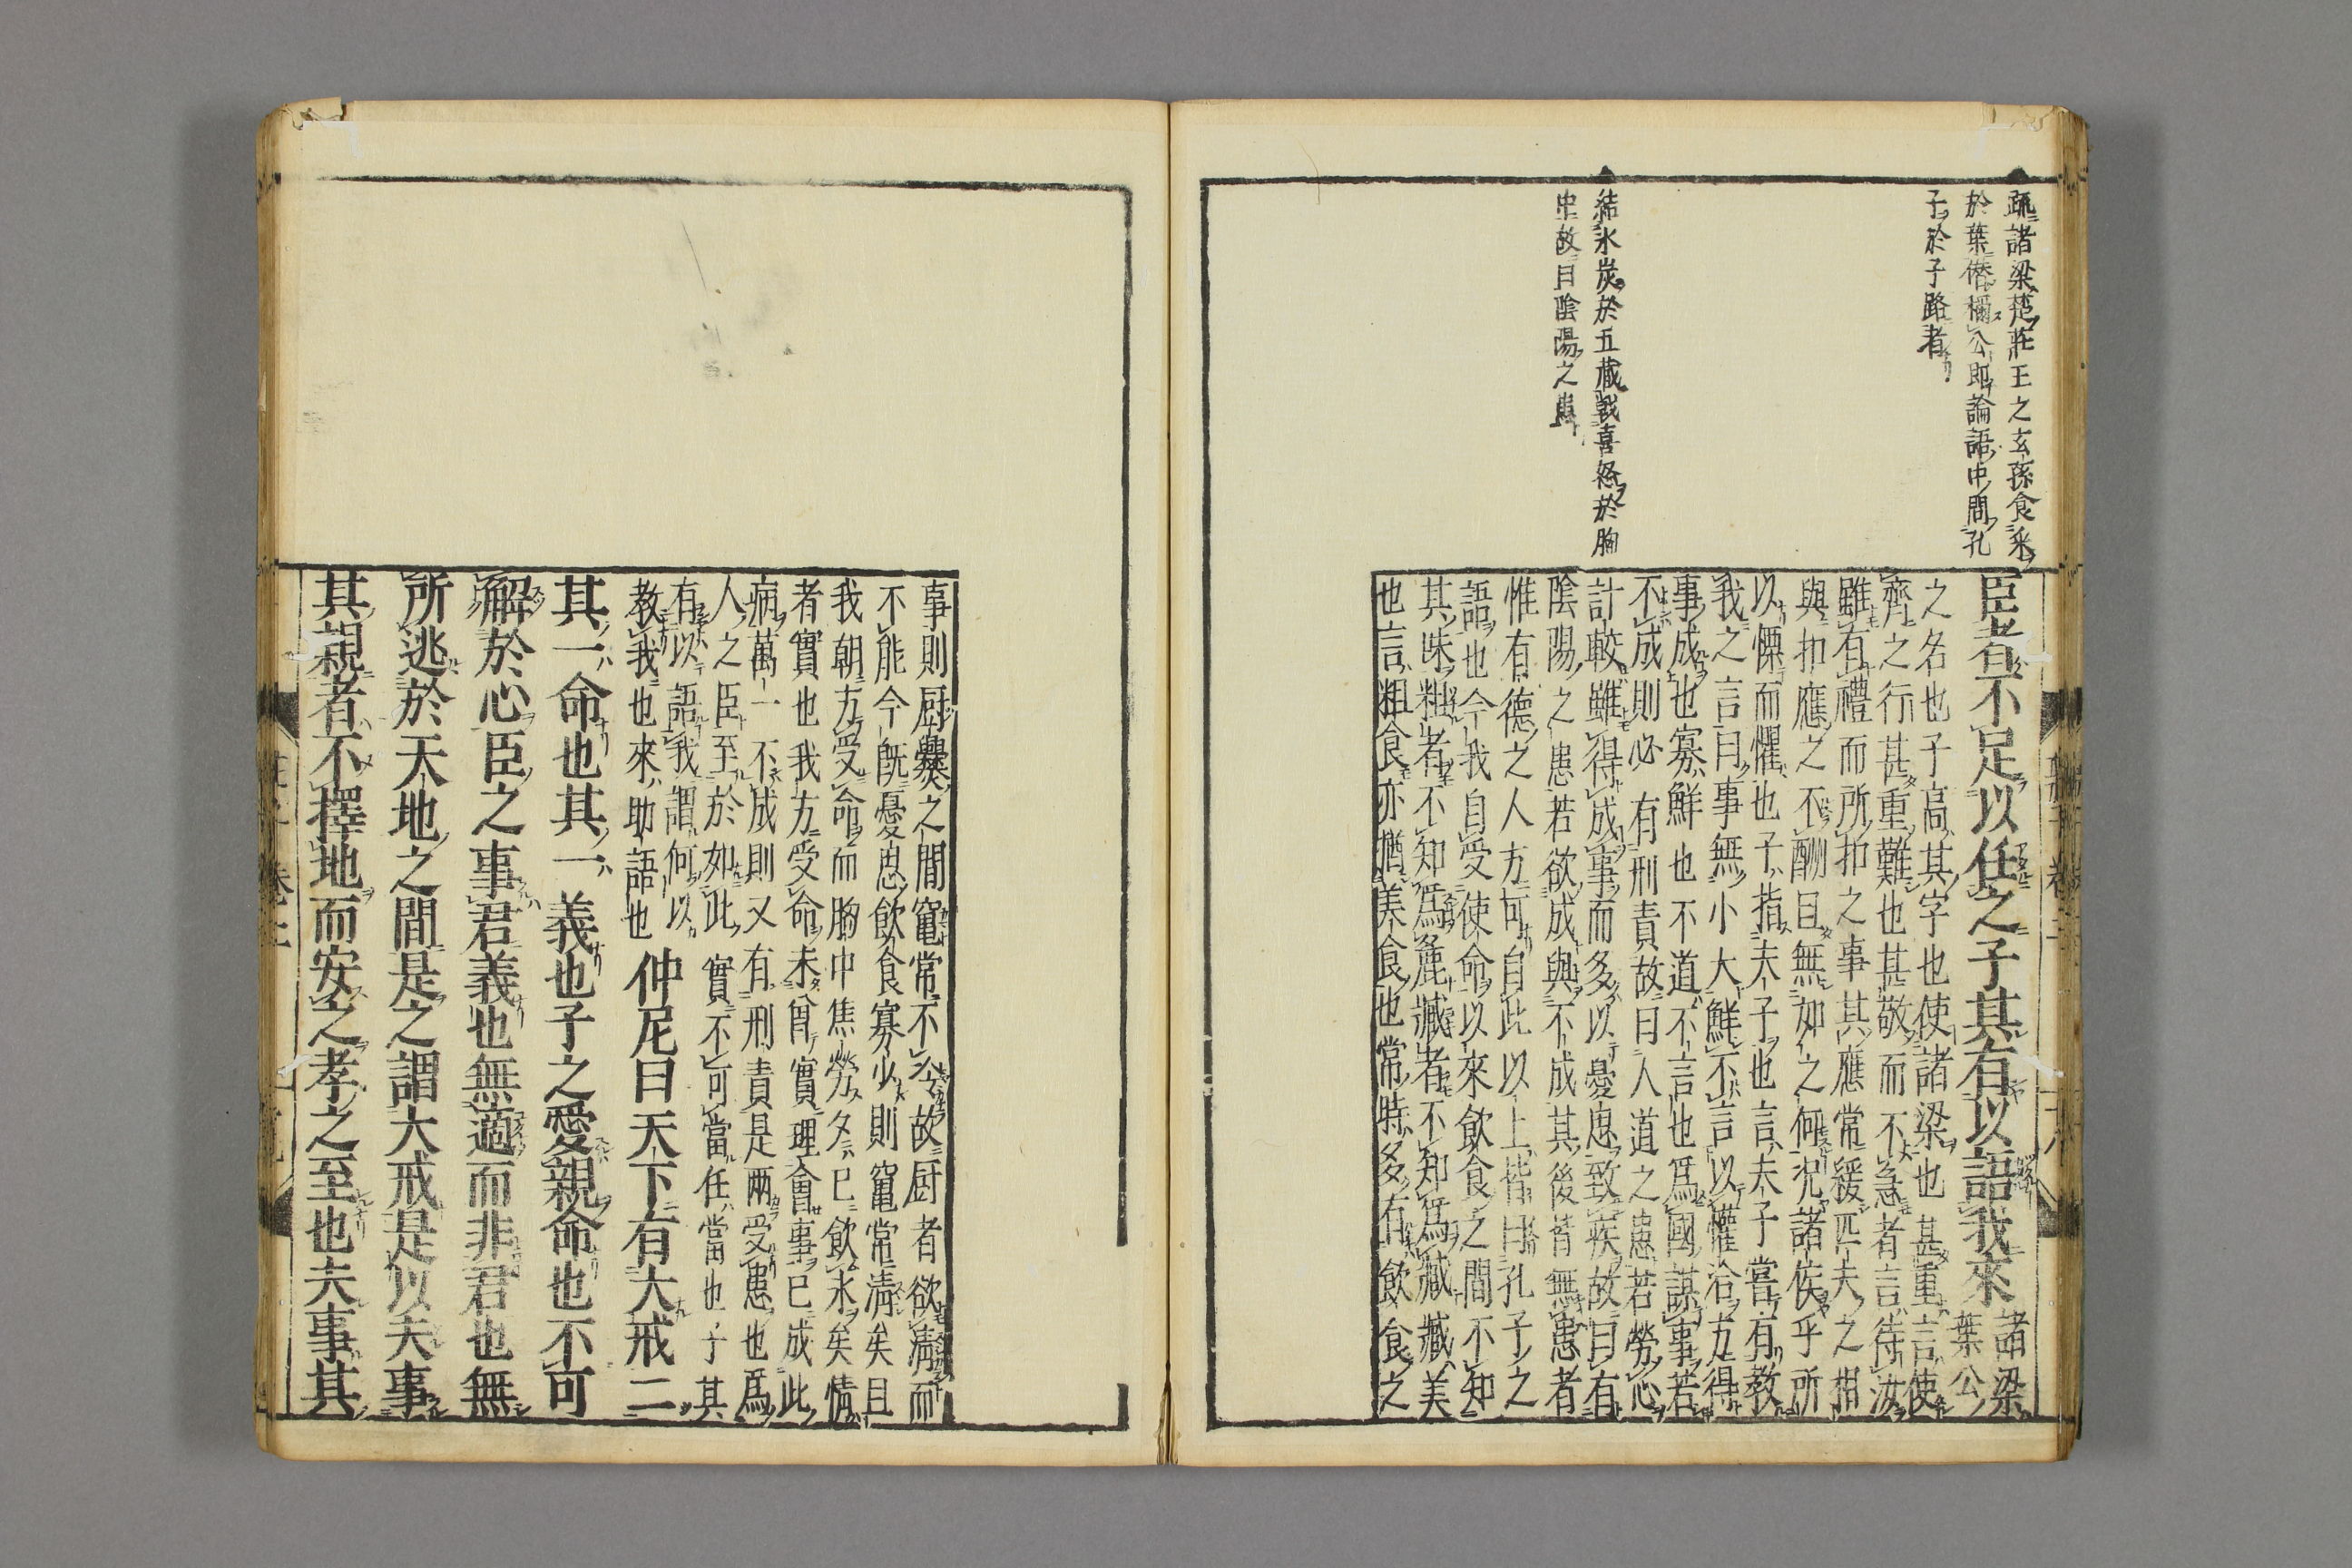 疏諸梁楚莊王之玄孫食采
於葉僭稱公即論語中問孔
子於子路者
結氷炭於五藏戰喜怒於胸
中故曰陰陽之患
臣者不足以任之子其有以語我來諸梁
葉公
之名也子高其字也使諸梁也甚重言使
齊之行甚重難也甚敬而不急者言待汝
雖有禮而所扣之事其應常緩匹夫之相
與扣應之不酬且無如之何况諸侯乎所
以慄而懼也子指夫子也言夫子嘗有教
我之言曰事無小大鮮不言以懽洽方得
事成也寡鮮也不道不言也爲國謀事若
不成則必有刑責故曰人道之患若勞心
計較雖得成事而多以憂思致疾故曰有
陰陽之患若欲成與不成其後皆無患者
惟有德之人方可自此以上皆曰孔子之
語也今我自受使命以來飲食之間不知
其味粗者不知爲麁臧者不知爲臧臧美
也言粗食亦猶美食也常時多有飲食之
事則厨爨之間竃常不公故厨者欲清而
不能今既憂思飲食寡少則竃常清矣且
我朝方受命而胸中焦勞夕已飲氷矣情
者實也我方受命未曾實理會事已成此
病萬一不成則又有刑責是兩受患也爲
人之臣至於如此實不可當任當也子其
有以語我謂何以
教我也來助語也仲尼曰天下有大戒二
其一命也其一義也子之愛親命也不可
解於心臣之事君義也無適而非君也無
所逃於天地之間是之謂大戒是以夫事
其親者不擇地而安之孝之至也夫事其